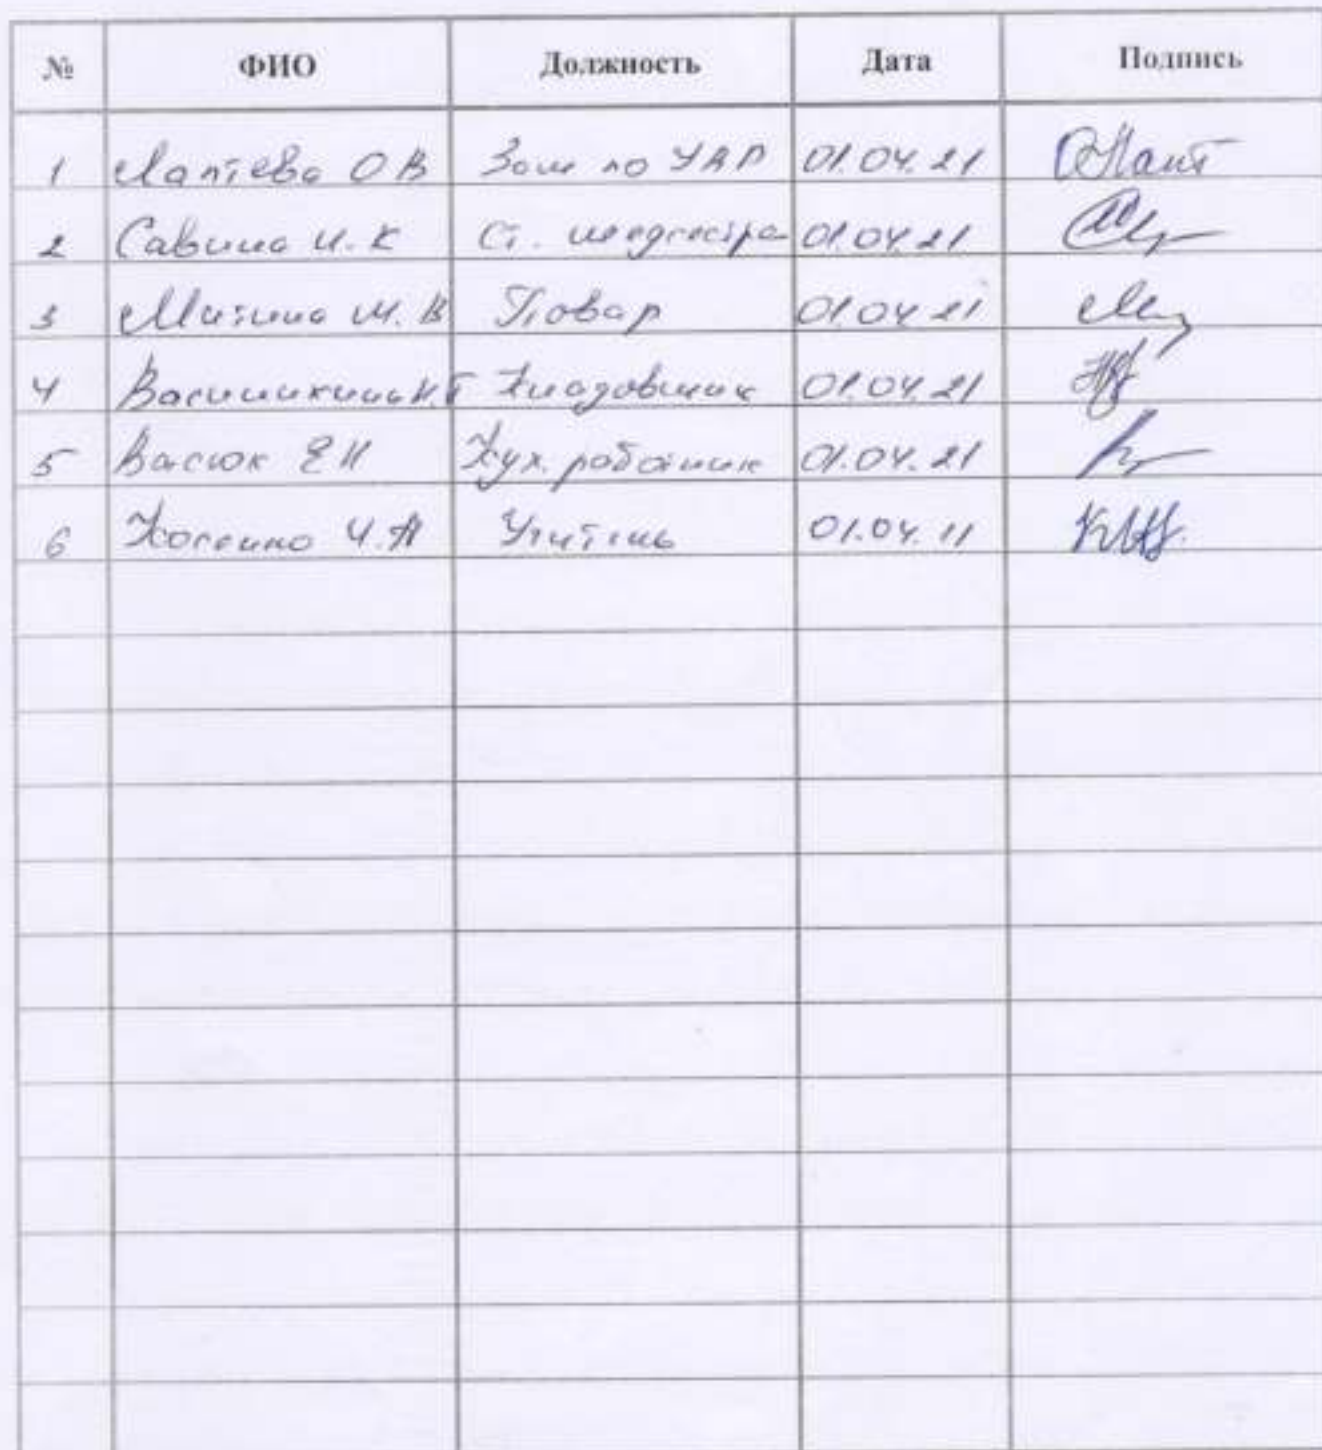 № ФИО Должность Дата Подпись
1 Лаптева О В Зам по УАР 01.04.21
2 Савина И. К Ст. медсестра 01.04.21
3 Митина М. В Повар 01.04.21
4 Кладовщик 01.04.21
5 Васюк Е Н Кух. работник 01.04.21
6 Учитель 01.04.11